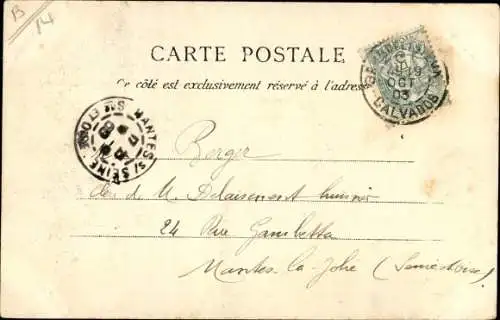 B
14
CARTE POSTALE
Ce côté est exclusivement réservé à l'adresse
19
OCT
03
CALVADOS
MANTES S/ SEINE
Berger
de M.
24 Rue Gambetta
Mantes-la-Jolie (Seine & Oise)